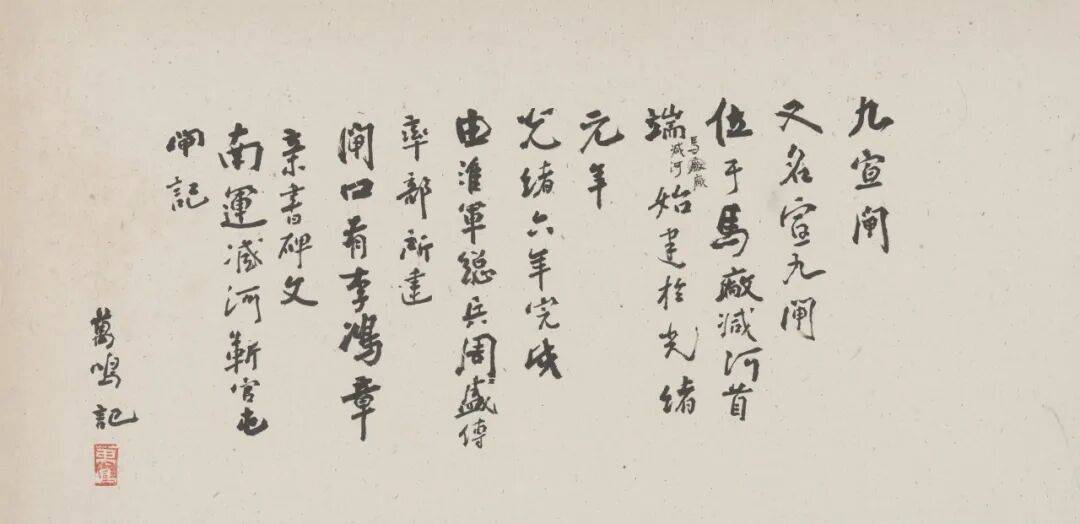 九宣闸
又名宣九闸
位于馬廠减河首
端馬廠减河始建於光緒
元年
光緒六年完成
由淮軍總兵周盛傳
率部所建
闸口有李鴻章
亲書碑文
南運减河靳官屯
闸記
萬鸣記